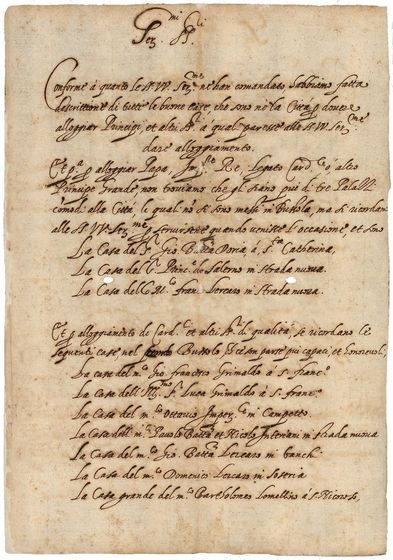 Ser.mi S.ri
Conforme à quanto le SS. VV. Ser.me ne han comandato, habbiamo fatta
descrittione di tutte le buone case, che sono nè la Città p dover
alloggiar Principi, et altri SS.ri à qual paresse alle SS. VV. Ser.me
dare alloggiamento.
Et p.a p alloggiar Papa, Imp.re Re, Legato Card.le o, altro
Prencipe grande, non troviamo che gli siano più di tre Palazzi
comodi alla Città, le quali nō si son messi in Bussola, ma si ricordano
alle SS. VV. Ser.me p servirsene quando venisse l'occasione, et sono
La Casa del Gio. Batta Doria, à S.ta Catherina,
La Casa del Prenc.e de Salerno in strada nuova.
La Casa del Franc.o Lercaro in strada nuova.
Et p alloggiamento de Card.li et altri SS.ri di qualità, se ricordano le
seguenti case nel Bussolo p. esser in parte più capaci, et honorevoli,
La casa del m.co Gio. francesco Grimaldo à S. franc.o
La casa dell' Ill.mo S.r Luca Grimaldo à S. franc.o
La Casa del m.co Ottavio Imper.le in Campetto.
La Casa delli m.ci Pavolo Batta et Nicolò Interian in strada nuova
La Casa del m.co Gio. Batta Lercaro in banchi.
La Casa del m.co Domenico Lercaro in Soseria
La Casa grande del m.co Bartholomeo Lomellino à S. Nicoroso,